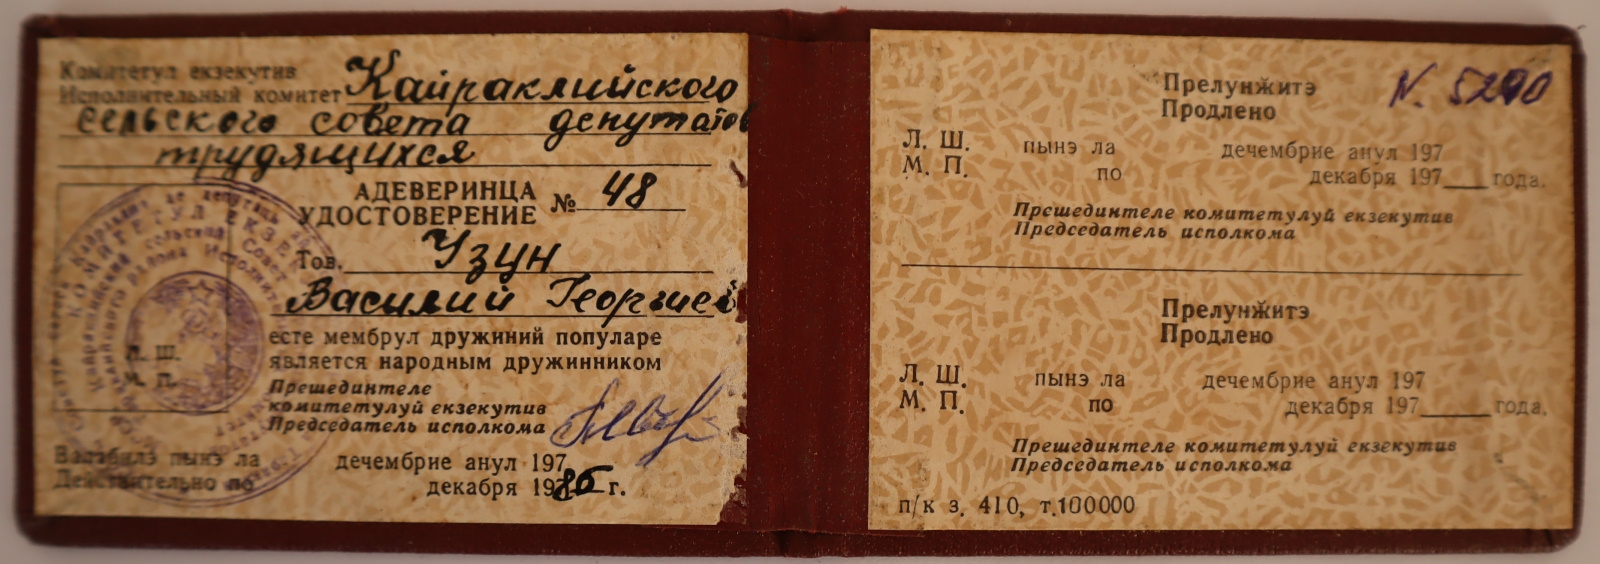 Комитетул екзекутив
Исполнительный комитет Кайраклийского
сельского совета депутатов
трудящихся
АДЕВЕРИНЦА
УДОСТОВЕРЕНИЕ № 48
Тов. Узун
Василий Георгиев
есте мембрул дружиний популаре
является народным дружинником
Прешединтеле
комитетулуй екзекутив
Председатель исполкома
Л. Ш.
М. П.
Валабилэ пынэ ла дечембрие анул 197
Действительно по декабря 1986 г.
Прелунӂитэ
Продлено
N. 5290
Л. Ш. пынэ ла дечембрие анул 197
М. П. по декабря 197___ года.
Прешединтеле комитетулуй екзекутив
Председатель исполкома
Прелунӂитэ
Продлено
Л. Ш. пынэ ла дечембрие анул 197
М. П. по декабря 197___ года.
Прешединтеле комитетулуй екзекутив
Председатель исполкома
п/к з. 410, т.100000